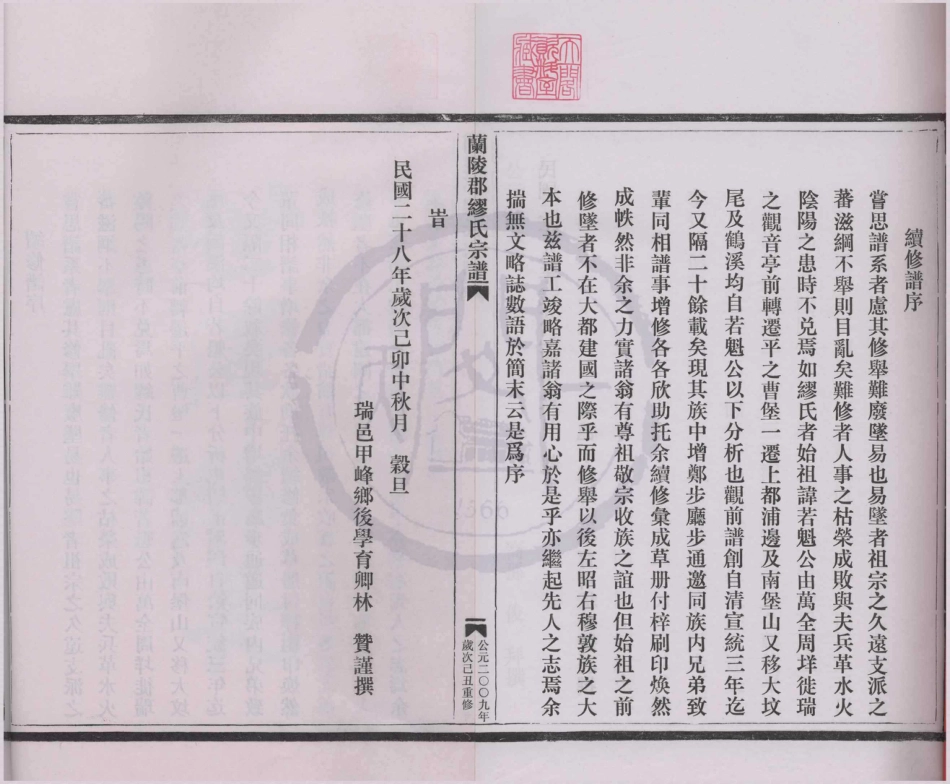 天一閣
新藏
藏書
續修譜序
嘗思譜系者慮其修舉難廢墜易也易墜者祖宗之久遠支派之
蕃滋綱不舉則目亂矣難修者人事之枯榮成敗與夫兵革水火
陰陽之患時不兌焉如繆氏者始祖諱若魁公由萬全周垟徙瑞
之觀音亭前轉遷平之曹堡一遷上都浦邊及南堡山又移大坟
尾及鶴溪均自若魁公以下分析也觀前譜創自清宣統三年迄
今又隔二十餘載矣現其族中增鄭步廳步通邀同族内兄弟致
輩同相譜事增修各各欣助托余續修彙成草册付梓刷印煥然
成帙然非余之力實諸翁有尊祖敬宗收族之誼也但始祖之前
修墜者不在大都建國之際乎而修舉以後左昭右穆敦族之大
本也兹譜工竣略嘉諸翁有用心於是乎亦繼起先人之志焉余
揣無文略誌數語於簡末云是爲序
蘭陵郡繆氏宗譜
一
公元二〇〇九年
歲次己丑重修
旹
民國二十八年歲次己卯中秋月 穀旦
瑞邑甲峰鄉後學育卿林 贊謹撰
1566